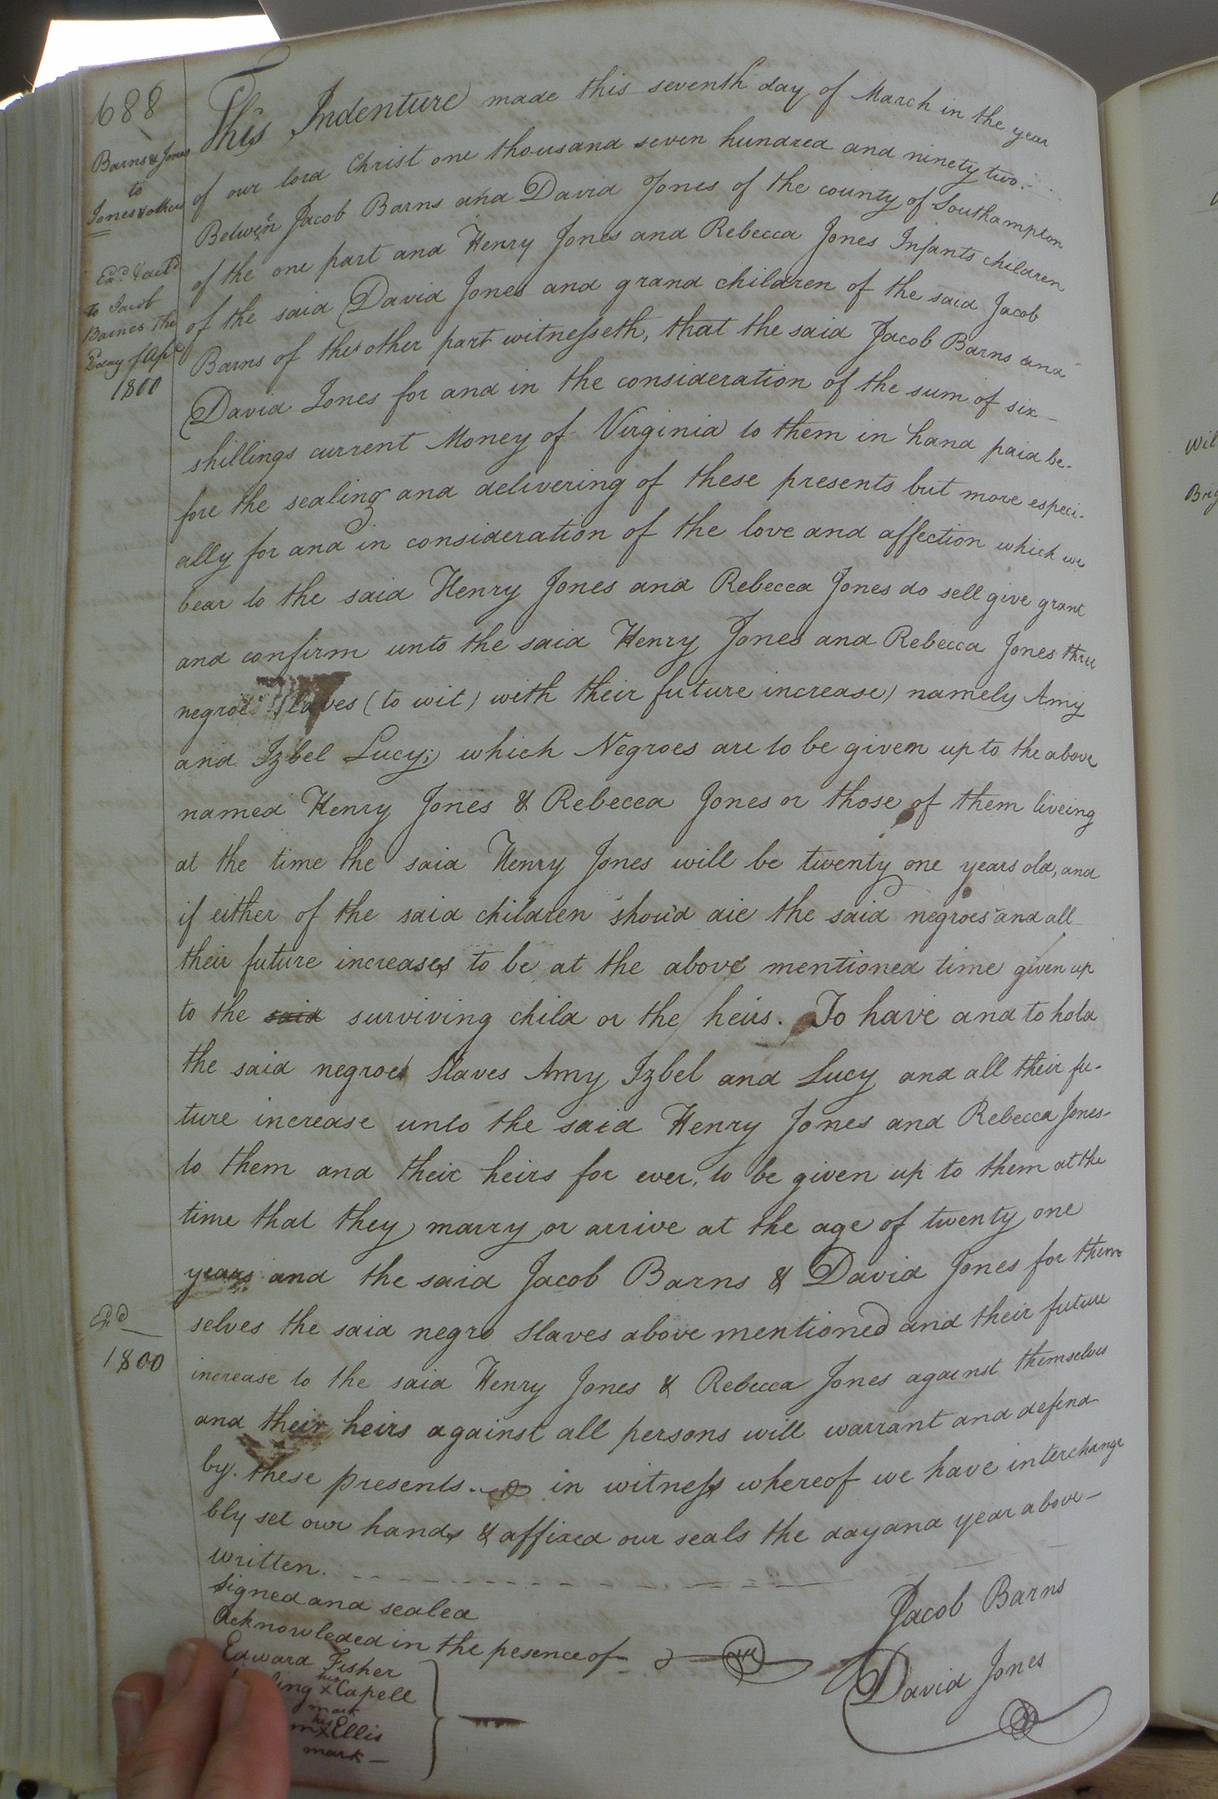 688
Barns & Jones
to
Jones & others
Exd.
to Jacob
Barnes the
day of
1800
This Indenture made this seventh day of March in the year
of our lord Christ one thousand seven hundred and ninety two.
Betwen Jacob Barns and David Jones of the county of Southampton
of the one part and Henry Jones and Rebecca Jones Infants children
of the said David Jones and grand children of the said Jacob
Barns of the other part witnesseth, that the said Jacob Barns and
David Jones for and in the consideration of the sum of six
shillings current Money of Virginia to them in hand paid be-
fore the sealing and delivering of these presents but more especi-
ally for and in consideration of the love and affection which we
bear to the said Henry Jones and Rebecca Jones do sell give grant
and confirm unto the said Henry Jones and Rebecca Jones three
negroe slaves (to wit) with their future increase) namely Amy
and Izbel Lucy; which Negroes are to be given up to the above
named Henry Jones & Rebecca Jones or those of them liveing
at the time the said Henry Jones will be twenty one years old, and
if either of the said children shou'd die the said negroes and all
their future increases to be at the above mentioned time given up
to the said surviving child or the heirs. To have and to hold
the said negroes slaves Amy Izbel and Lucy and all their fu-
ture increase unto the said Henry Jones and Rebecca Jones-
to them and their heirs for ever, to be given up to them at the
time that they marry or arrive at the age of twenty one
years and the said Jacob Barns & David Jones for them
selves the said negro slaves above mentioned and their future
Exd
1800
increase to the said Henry Jones & Rebecca Jones against themselves
and their heirs against all persons will warrant and defend
by these presents. in witness whereof we have interchange
bly set our hands & affixed our seals the day and year above-
written.
signed and sealed
Acknowleded in the pesence of
Jacob Barns
Edward Fisher
David Jones
his
x Capell
mark
his
x Ellis
mark